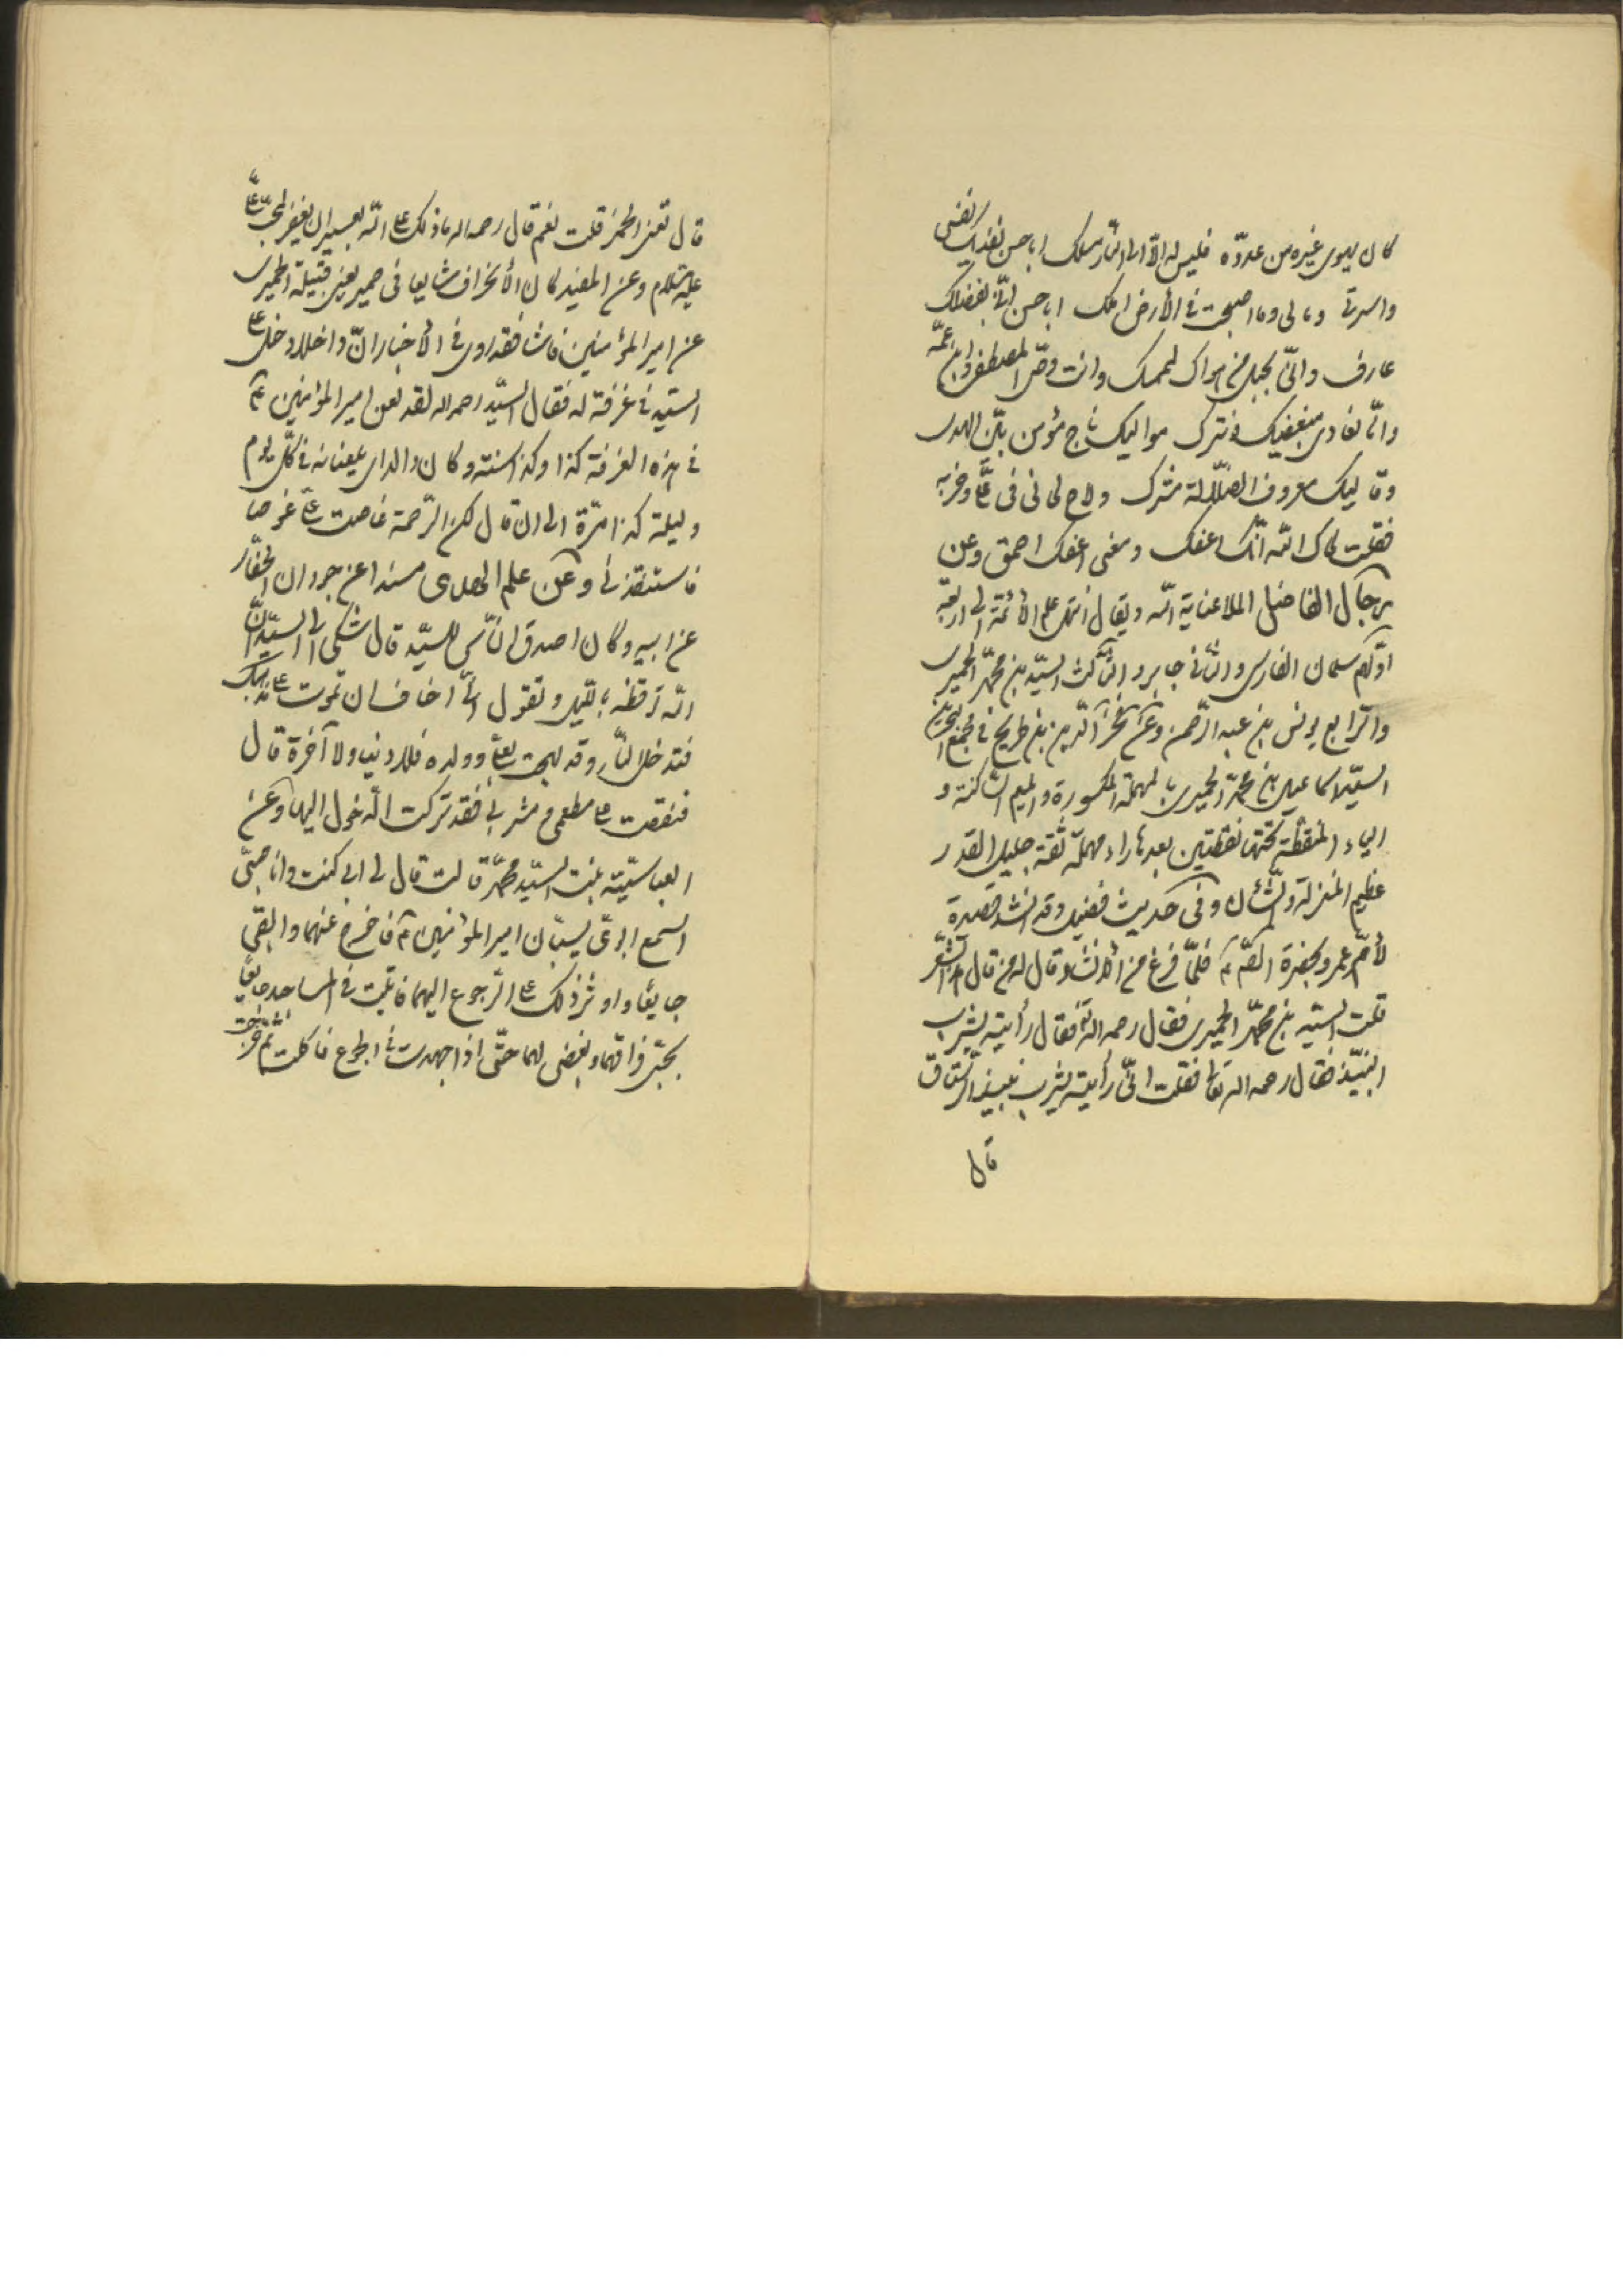 كان يهوى غيره من عدوه فليس له الا الى النار مسلك ابا حسن تفديك نفسى
واسرتى ومالى وما اصبحت فى الأرض املك ابا حسن انى بفضلك
عارف وانّى بحبل من هواك لممسك وانت وصىّ المصطفى وابن عمّه
وانّا نعادى مبغضيك ونترك مواليك ناج مؤمن بيّن الهدى
وقاليك معروف الضّلالة مشرك ولاح لحانى فى علىّ وحزبه
فقلت لحاك اللّه انّك اعفك ومعنى اعفك احمق وعن
رجال الفاضل الملا عناية اللّه ويقال انتهى علم الأئمّة الى اربعة
اوّلهم سلمان الفارسى والثّانى جابر والثّالث السيّد بن محمّد الحميرى
والرّابع يونس بن عبد الرّحمن وعن فخر الدّين بن طريح فى مجمع البحرين
السيّد اسماعيل بن محمّد الحميرى بالمهملة المكسورة والميم السّاكنة و
الياء المنقّطة تحتها نقطتين بعدها راء مهملة ثقة جليل القدر
عظيم المنزلة والشّأن وفى حديث فضيل وقد انشد قصيدة
لأمّ عمرو بحضرة الصّ ع فلمّا فرغ من الأنشاد قال له من قال هذا الشّعر
قلت السيّد بن محمّد الحميرى فقال رحمه اللّه فقال رأيته يشرب
النّبيذ فقال رحمه اللّه تعا فقلت انّى رأيته يشرب نبيذ الرّستاق
قال
قال تعنى الخمر قلت نعم قال رحمه اللّه ما ذلك على اللّه بعسير ان يغفر لمحبّ علىّ
عليه السّلام وعن المفيد كان الأنحراف شايعا فى حمير يعنى قبيلة الحميرى
عن امير المؤمنين فاشا فقد روى فى الأخبار انّ داخلا دخل على
السيّد فى غرفة له فقال السيّد رحمه اللّه لقد لعن امير المؤمنين ع
فى هذه الغرفة كذا وكذا سنة وكان والداى يلعنانه فى كلّ يوم
وليلة كذا مرّة الى ان قال لكن الرّحمة غاصت علىّ غوصا
فاستنقذنى وعن علم الهدى مسندا عن جردان الحفّار
عن ابيه وكان اصدق النّاس للسيّد قال شكى الىّ السيّد انّ
امّه توقظه باللّيل وتقول انّى اخاف ان تموت على مذهبك
فتدخل النّار وقد لهجت بعلىّ وولده فلا دنيا ولا آخرة قال
فنغّصت على مطعمى ومشربى فقد تركت الدّخول اليها وعن
العبّاسيّة بنت السيّد محمّد قالت قال لى ابى كنت وانا صبىّ
اسمع ابوىّ يسبّان امير المؤمنين ع فاخرج عنهما وابقى
جايعا واوثر ذلك على الرّجوع اليهما فابيت فى المساجد جايعا
لحبّى فراقهما وبغضى لهما حتّى اذا اجهدت فى الجوع فاكلت ثمّ خرجت